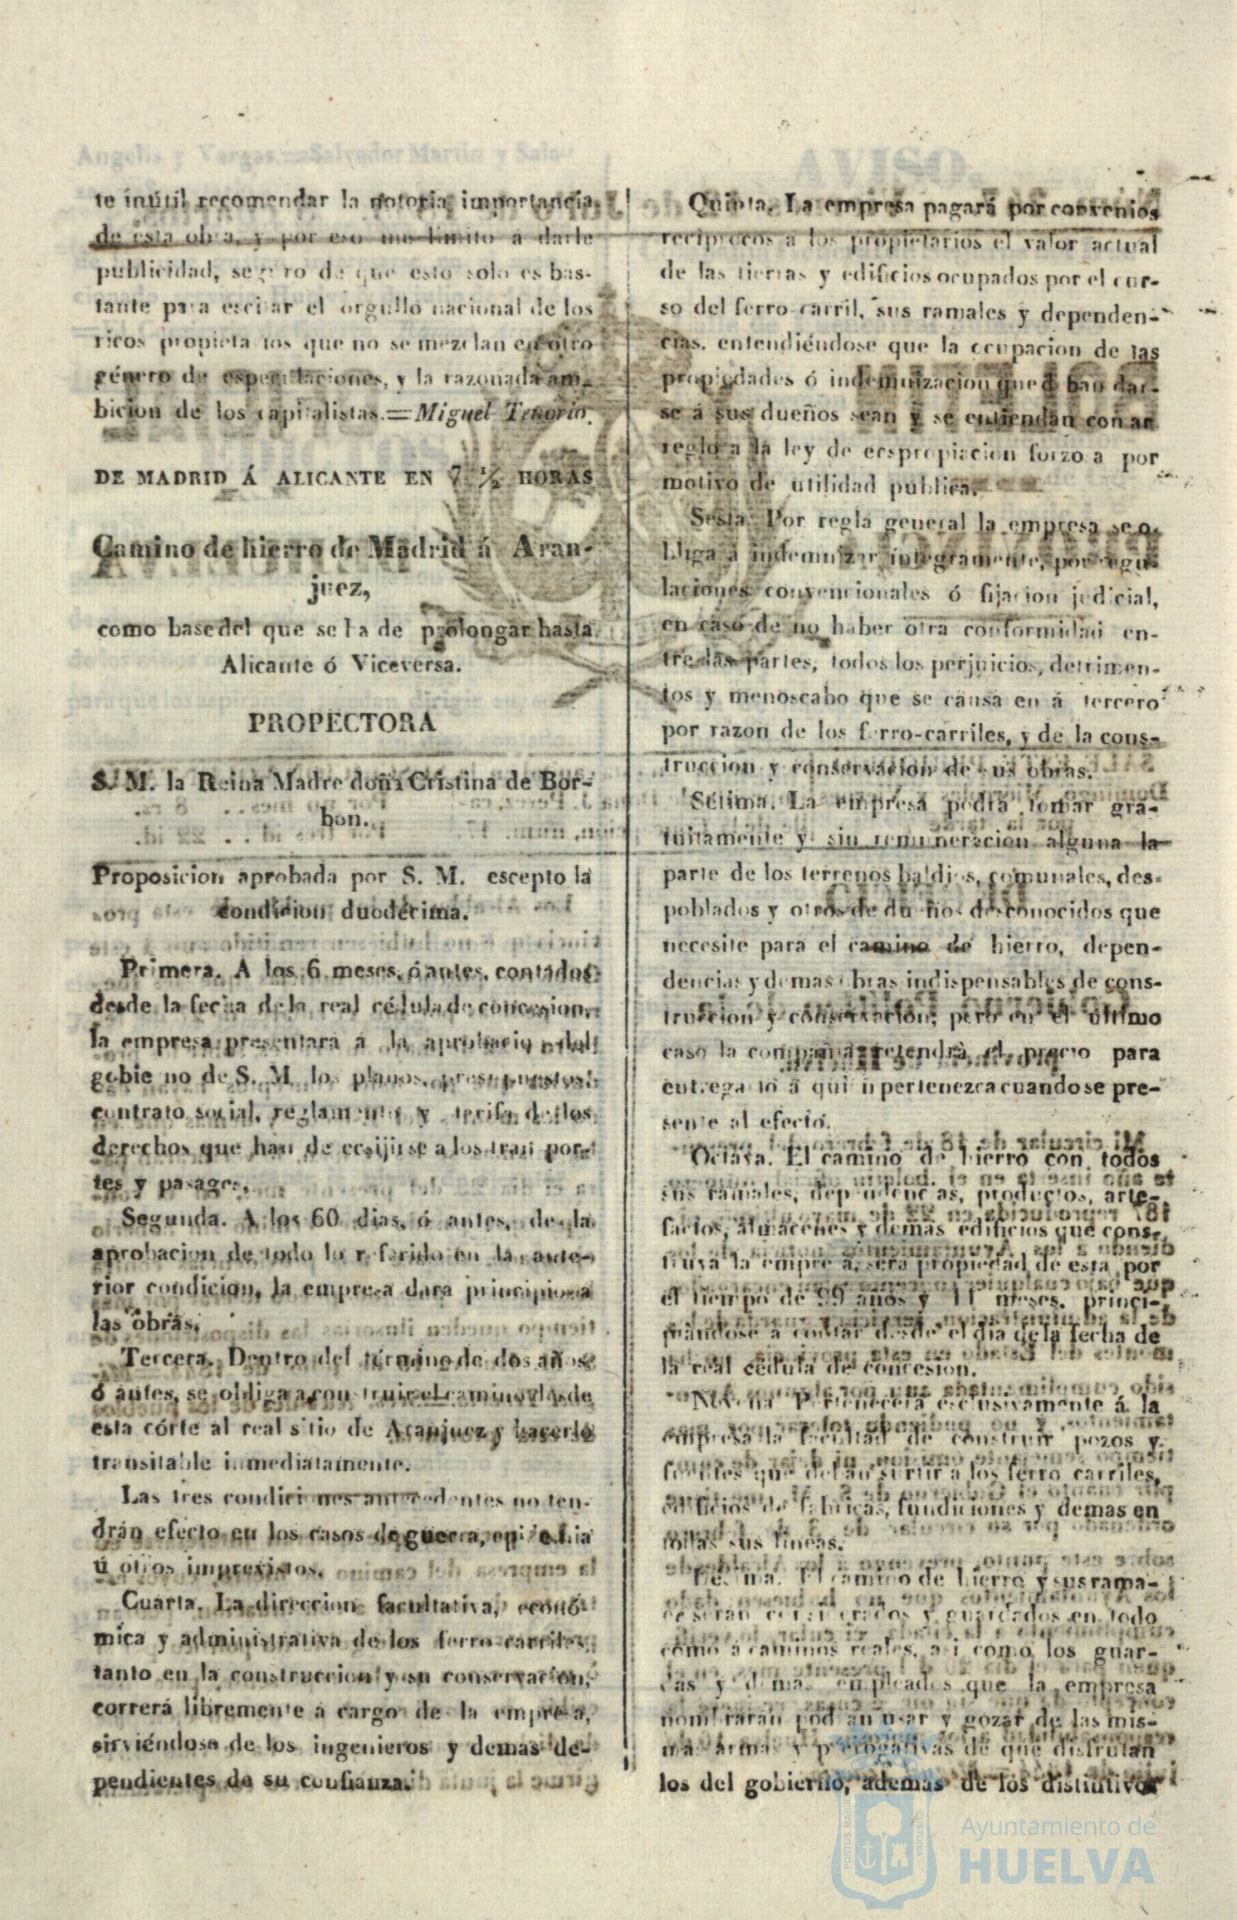 te inútil recomendar la notoria importancia
de esta obra, y por eso me limito á darle
publicidad, seguro de que esto solo es bas-
tante para escitar el orgullo nacional de los
ricos propietarios que no se mezclan en otro
género de especulaciones, y la razonada am-
bicion de los capitalistas.=Miguel Tenorio.
DE MADRID Á ALICANTE EN 7 ½ HORAS
Camino de hierro de Madrid á Aran-
juez,
como base del que se ha de prolongar hasta
Alicante ó Viceversa.
PROPECTORA
S. M. la Reina Madre doña Cristina de Bor-
bon.
Proposicion aprobada por S. M. escepto la
condicion duodecima.
Primera. A los 6 meses, ó antes, contados
desde la fecha de la real cédula de concesion,
la empresa presentara á la aprobacion del
gobierno de S. M. los planos, presupuestos,
contrato social, reglamento y tarifa de los
derechos que han de ecsijirse a los tranportes
tes y pasages.
Segunda. A los 60 dias, ó antes, de la
aprobacion de todo lo referido en la ante-
rior condicion, la empresa dara principio a
las obras.
Tercera. Dentro del término de dos años
ó antes, se obliga a construir el camino desde
esta córte al real sitio de Aranjuez y hacerlo
transitable inmediatamente.
Las tres condiciones antecedentes no ten-
drán efecto en los casos de guerra, epidemia
ú otros imprevistos.
Cuarta. La direccion facultativa, econó-
mica y administrativa de los ferro-carriles,
tanto en la construccion y su conservacion,
correrá libremente á cargo de la empresa,
sirviéndose de los ingenieros y demas de-
pendientes de su confianza.
Quinta. La empresa pagará por convenios
recíprocos a los propietarios el valor actual
de las tierras y edificios ocupados por el cur-
so del ferro-carril, sus ramales y dependen-
cias, entendiéndose que la ocupacion de las
propiedades ó indemnizacion que á han dar-
se á sus dueños sean y se entiendan con ar
reglo a la ley de ecspropiacion forzosa por
motivo de utilidad publica.
Sesta. Por regla general la empresa se o-
bliga á indemnizar integramente, por regu-
laciones convencionales ó fijacion judicial,
en caso de no haber otra conformidad en-
tre las partes, todos los perjuicios, detrimen-
tos y menoscabo que se causaen á tercero
por razon de los ferro-carriles, y de la cons-
truccion y conservacion de sus obras.
Sétima. La empresa podrá tomar gra-
tuitamente y sin remuneracion alguna la
parte de los terrenos baldios, comunales, des-
poblados y otros de dueños desconocidos que
necesite para el camino de hierro, depen-
dencias y demas obras indispensables de cons-
truccion y conservacion; pero en el último
caso la compañia retendrá el precio para
entregarlo á quien pertenezca cuando se pre-
sente al efecto.
Octava. El camino de hierro con todos
sus ramales, dependencias, productos, arte-
factos, almacenes y demás edificios que cons-
truya la empresa, será propiedad de esta por
el tiempo de 99 años y 11 meses, princi-
piandose á contar desde el dia de la fecha de
la real cédula de concesion.
Novena. Pertenecerá esclusivamente á la
empresa la facultad de construir pozos y
fuentes que deban surtir a los ferro carriles,
edificios de fabricas, fundiciones y demas en
todas sus lineas.
Decima. El camino de hierro y sus rama-
les serán considerados y guardados en todo
como á caminos reales, asi como los guar-
das y demas empleados que la empresa
nombrarán podran usar y gozar de las mis-
mas armas y prerogativas de que disfrutan
los del gobierno, además de los distintivos
Ayuntamiento de
HUELVA